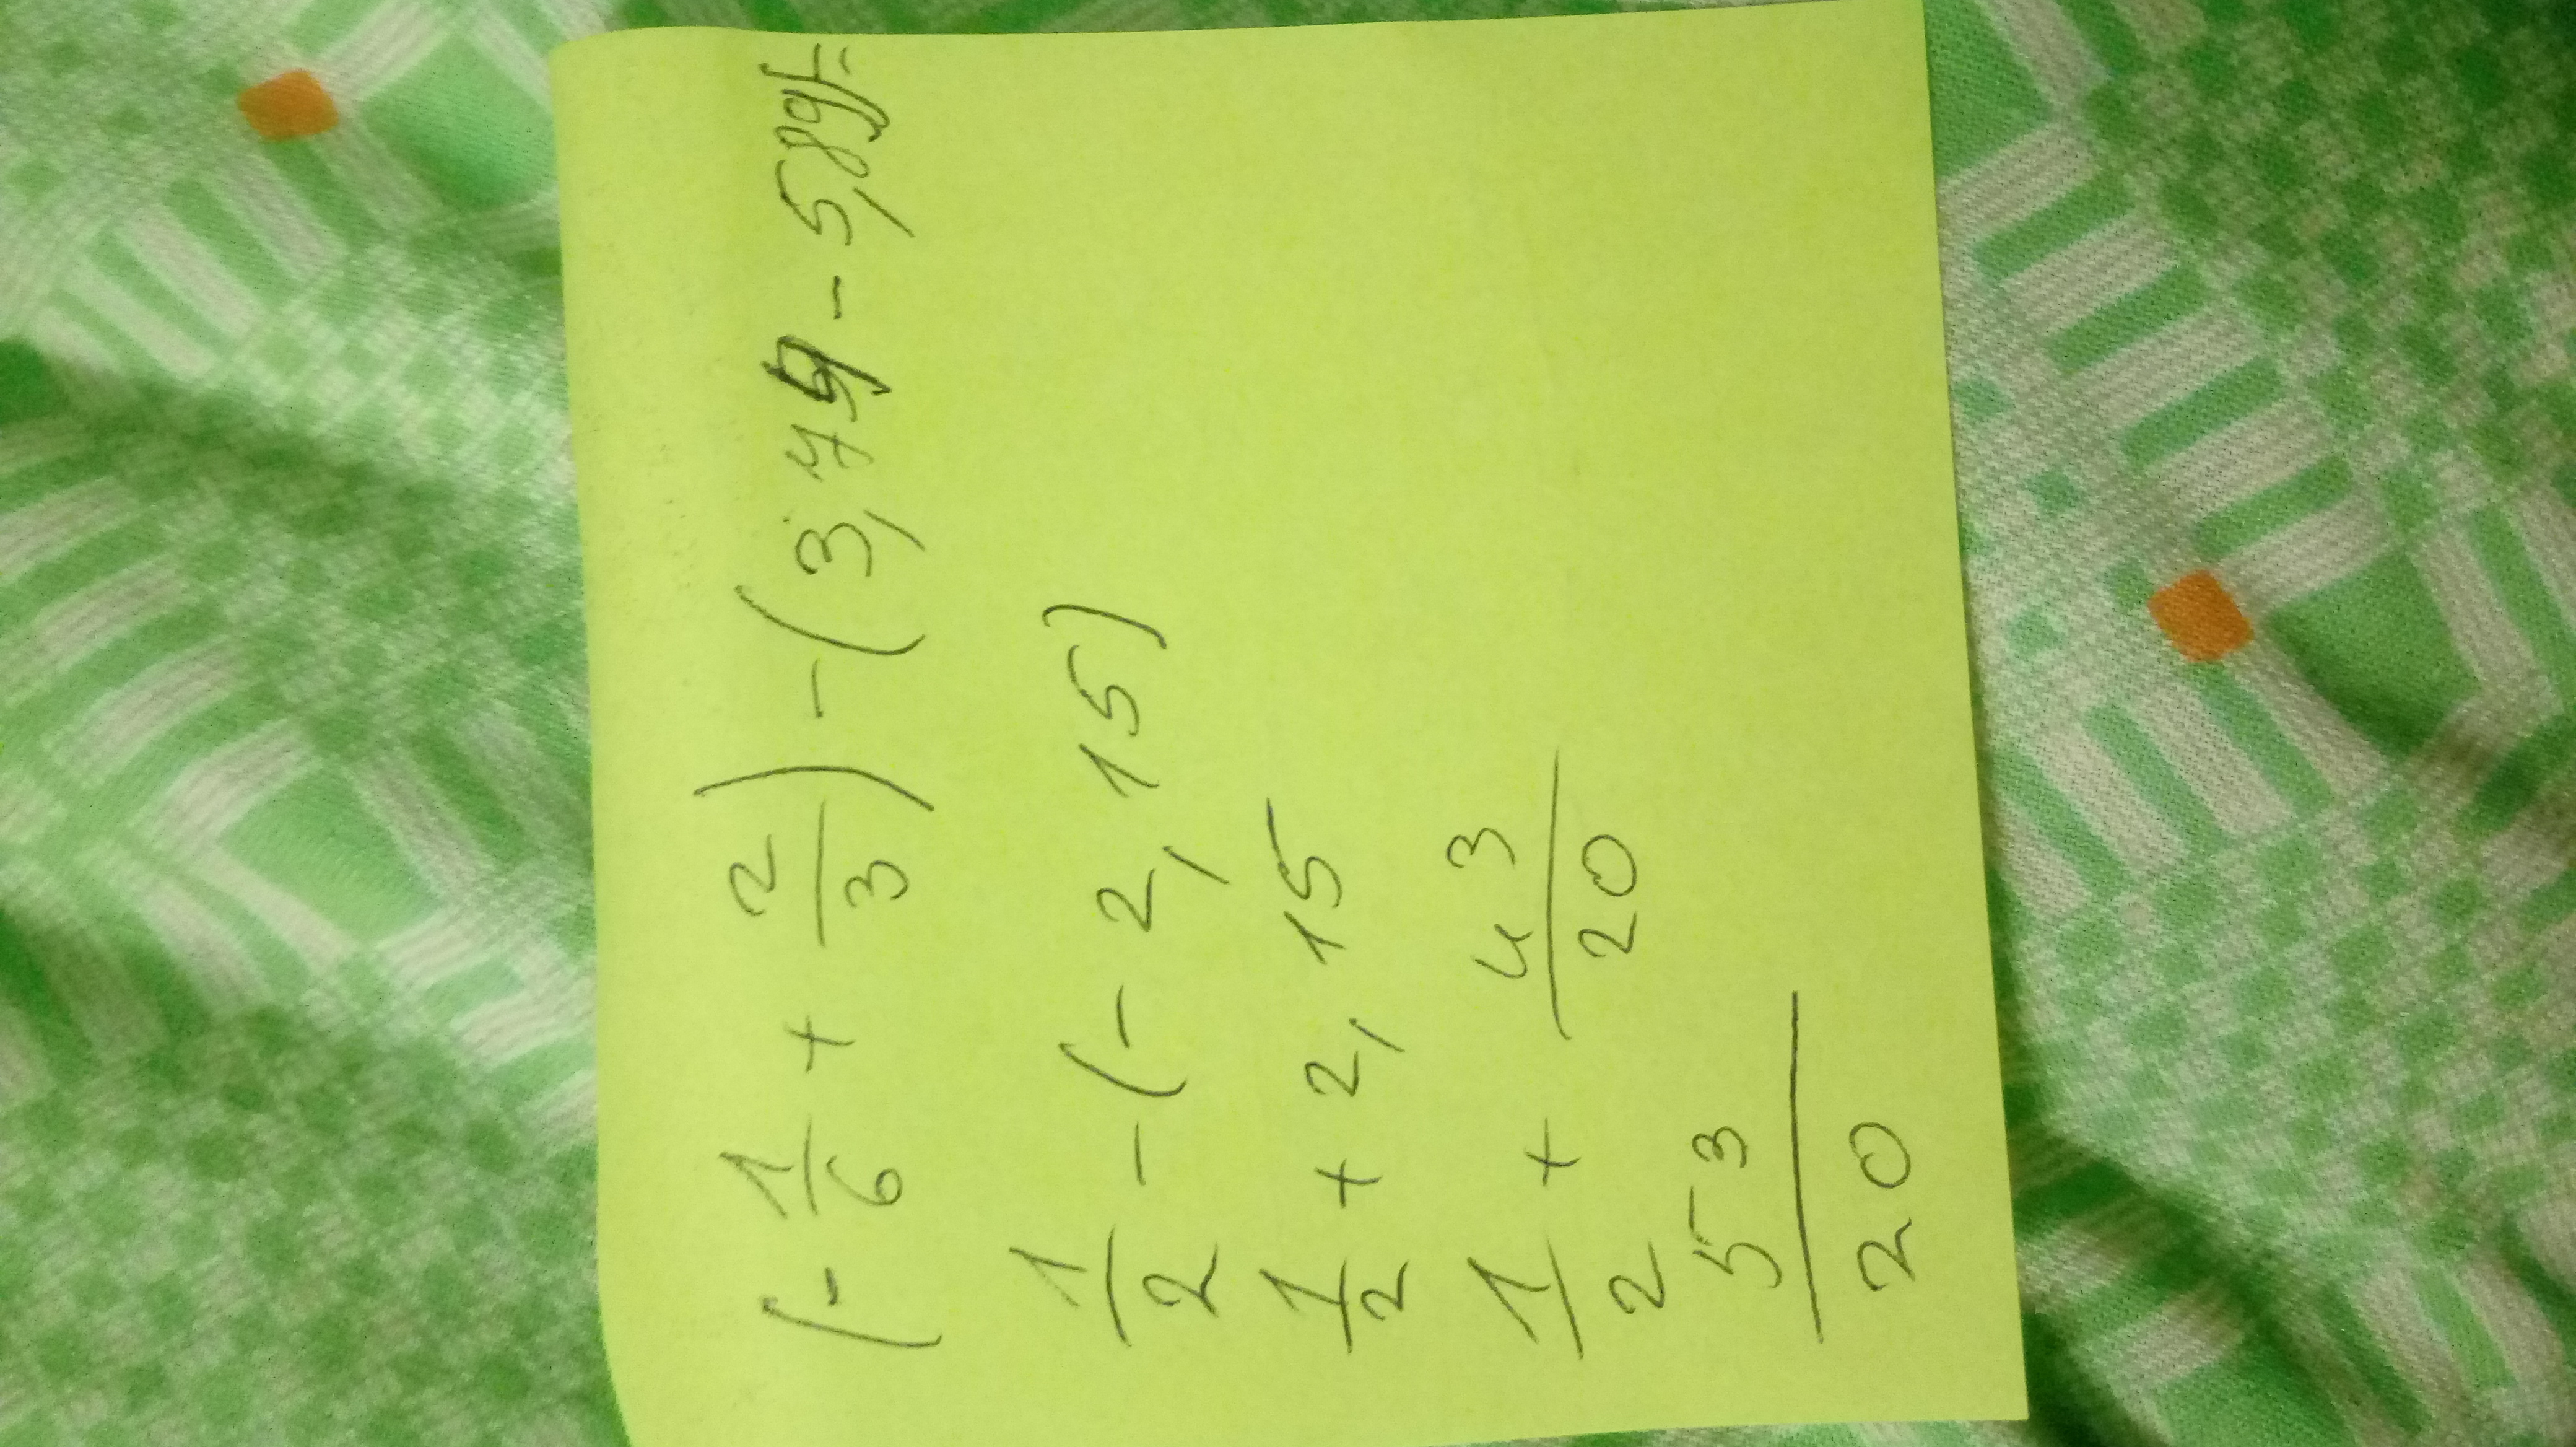 (- 1/6 + 2/3) - (3,74 - 5,89) =
1/2 - (- 2, 15)
1/2 + 2, 15
1/2 + 43/20
53/20